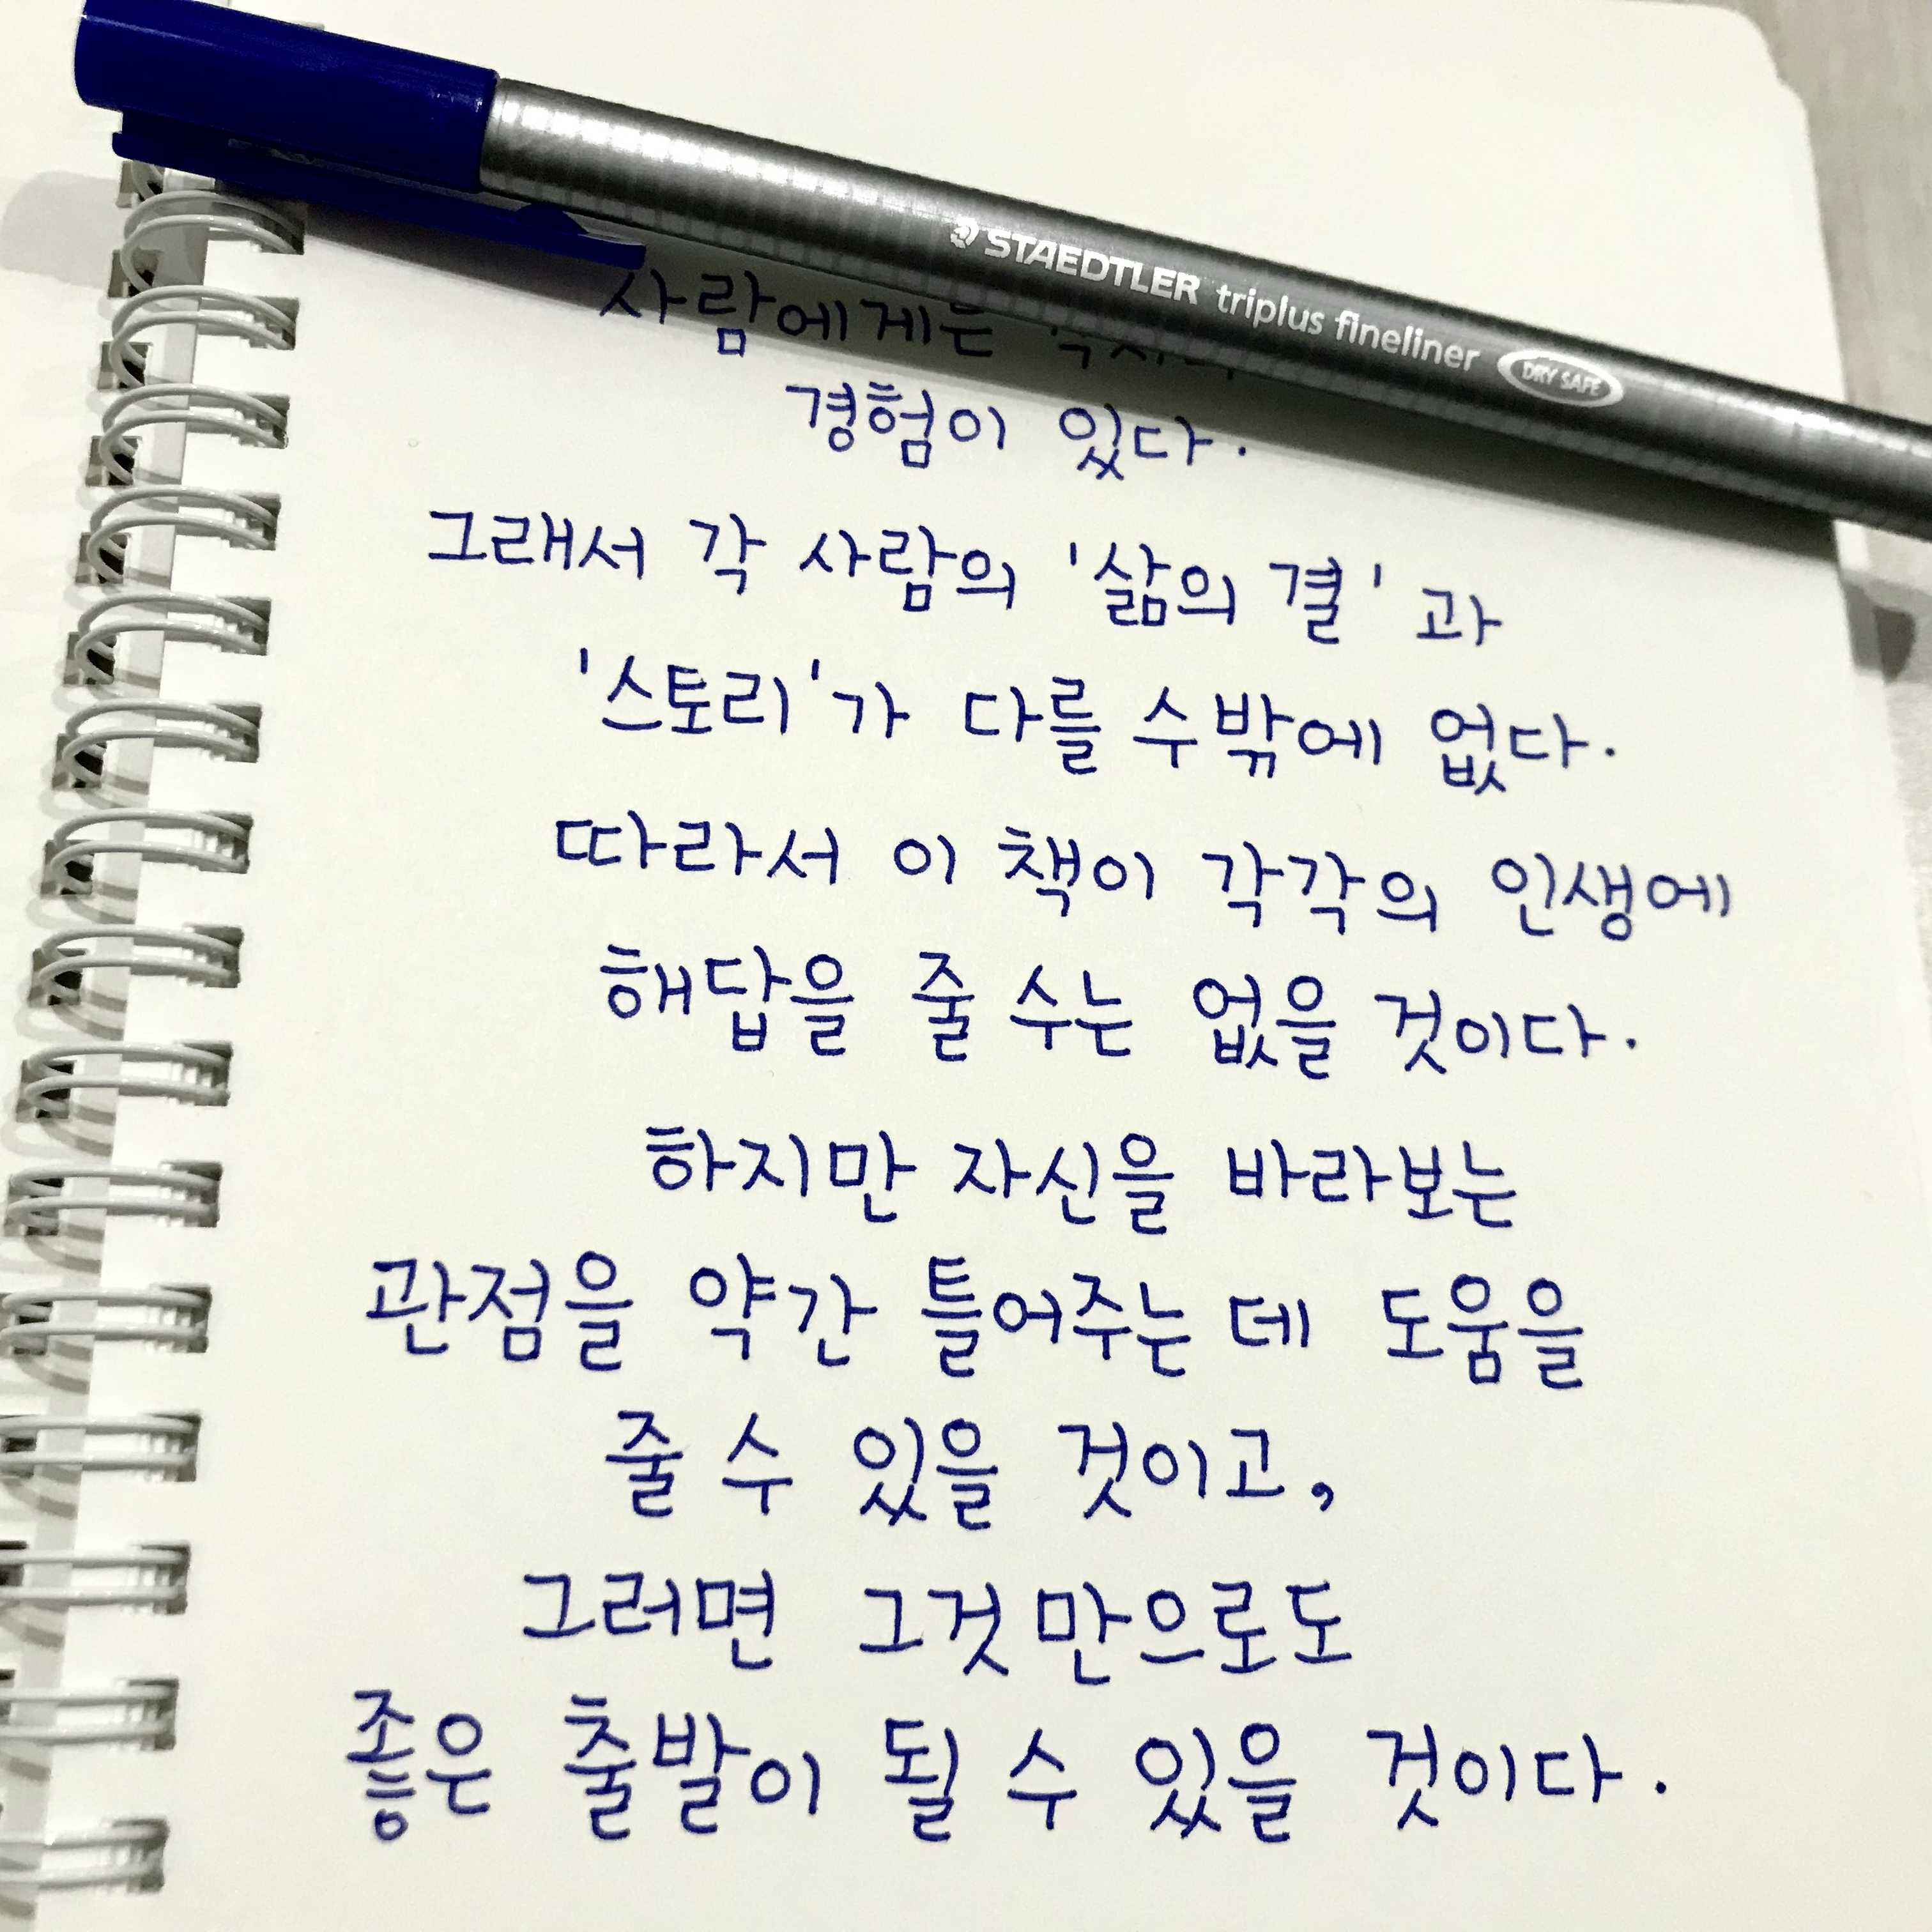 STAEDTLER triplus fineliner DRY SAFE
사람에게는
경험이 있다.
그래서 각 사람의 '삶의 결'과
'스토리'가 다를 수밖에 없다.
따라서 이 책이 각각의 인생에
해답을 줄 수는 없을 것이다.
하지만 자신을 바라보는
관점을 약간 틀어주는 데 도움을
줄 수 있을 것이고,
그러면 그것만으로도
좋은 출발이 될 수 있을 것이다.